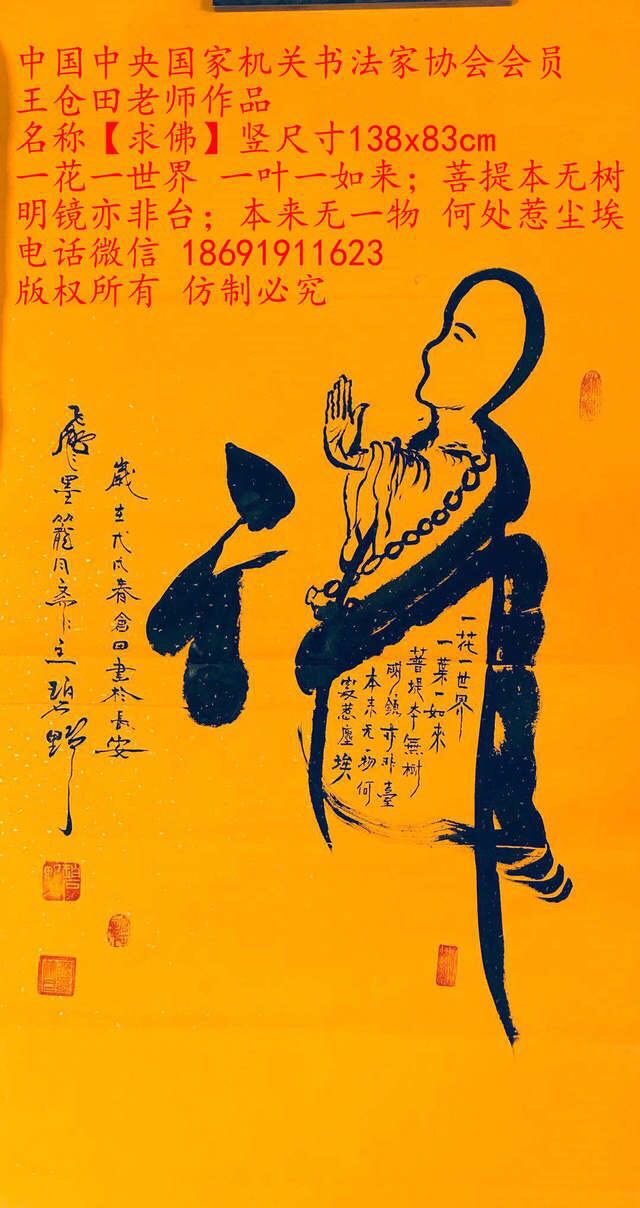 中国中央国家机关书法家协会会员
王仓田老师作品
名称【求佛】竖尺寸138x83cm
一花一世界 一叶一如来；菩提本无树
明镜亦非台；本来无一物 何处惹尘埃
电话微信 18691911623
版权所有 仿制必究
佛
一花一世界
一葉一如來
菩提本無樹
明鏡亦非臺
本来無一物何
處惹塵埃
歲在戊戌春倉田書於長安
墨籠月齋主碧野